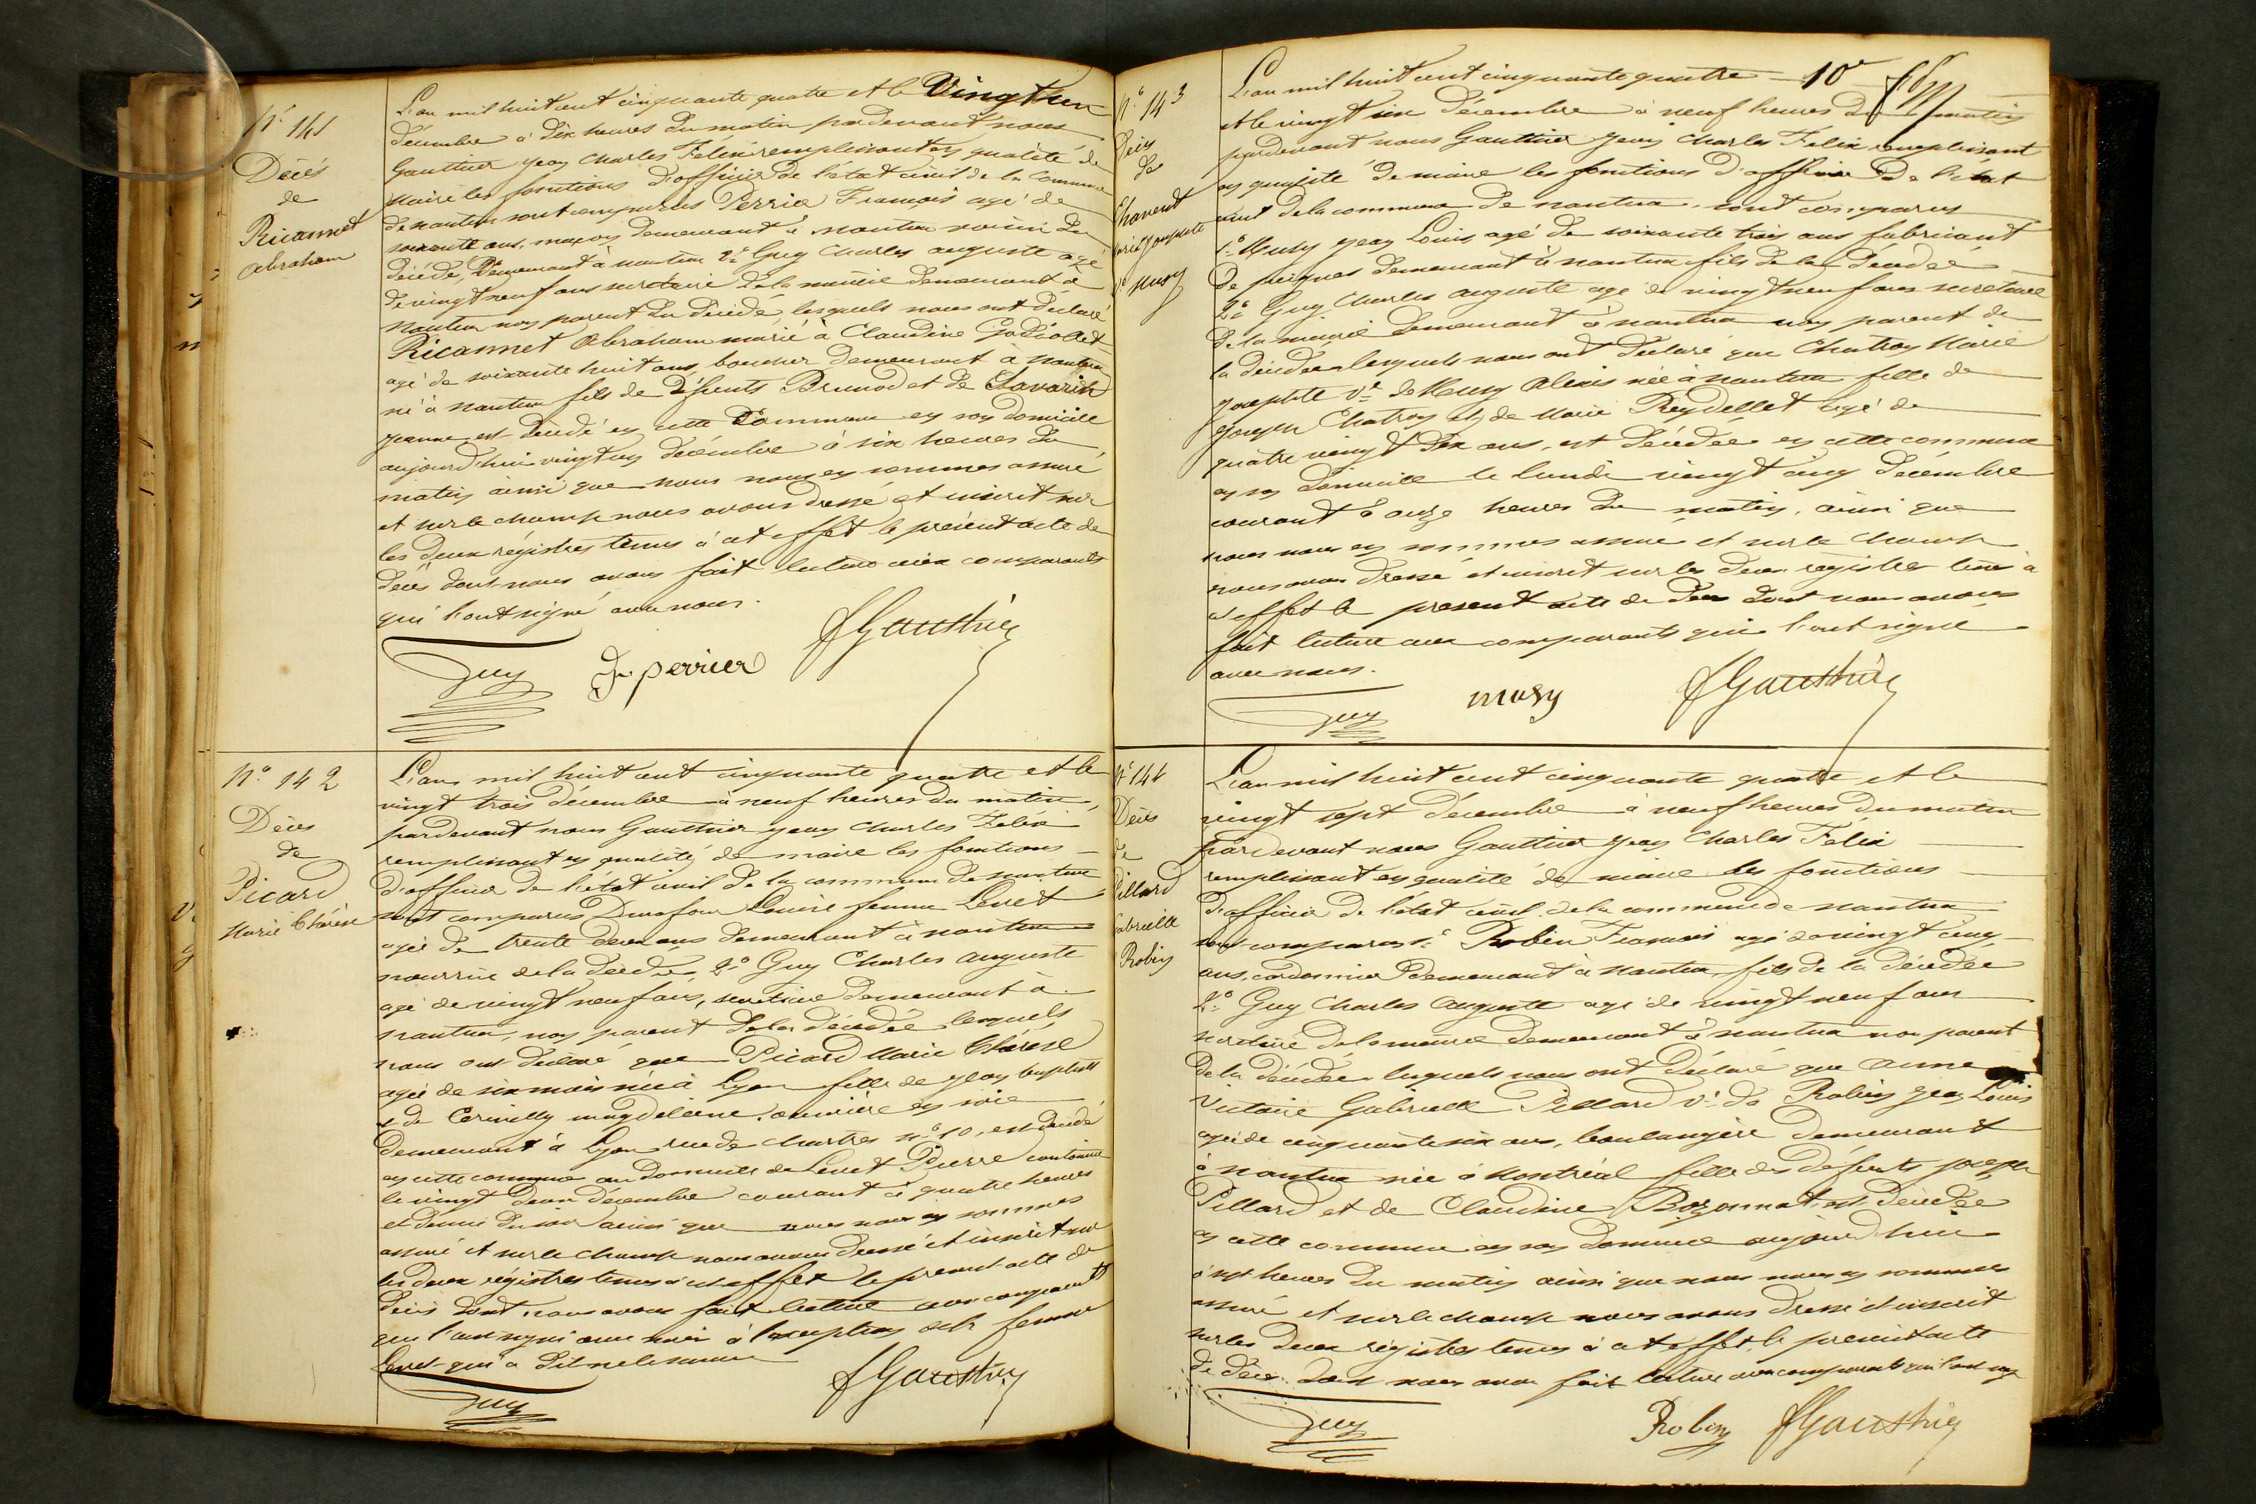 N° 141
Décès
de
Ricannet
Abraham
L'an mil huit cent cinquante quatre et le Vingt un
décembre à dix heures du matin pardevant nous
Gauthier Jean Charles Felix remplissant en qualité de
Maire les fonctions d'officier de l'état civil de la Commune
de nantua sont comparus Perrier François agé de
soixante ans, maçon demeurant à nantua voisin du
décédé, Demeurant à nantua 2° Guy Charles auguste agé
de vingt neuf ans secretaire de la mairie demeurant à
Nantua non parent du décédé, lesquels nous ont déclaré
Ricannet Abraham marié à Claudine
agé de soixante huit ans, boucher demeurant à nantua
né à Nantua fils de défunts Brunod et de Savarin
Jeanne est décédé en cette Commune en son domicile
aujourd'hui vingt un décembre à six heures du
matin ainsi que nous nous en sommes assuré
et sur le champ nous avons dressé et inscrit sur
les deux régistres tenus à cet effet le présent acte de
décès dont nous avons fait lecture aux comparants
qui l'ont signé avec nous.
Guy perrier Gauthier
N° 142
Décès
de
Picard
Marie Thérèse
L'an mil huit cent cinquante quatre et le
vingt trois décembre à neuf heures du matin,
pardevant nous Gauthier Jean Charles Felix
remplissant en qualité de maire les fonctions
d'officier de l'état civil de la commune de nantua
sont comparus Louise femme Levet
agée de trente deux ans demeurant à nantua
nourrice de la décédée, 2° Guy Charles Auguste
agé de vingt neuf ans, secretaire demeurant à
nantua, non parent de la décédée lesquels
nous ont déclaré que Picard Marie Thérèse
agée de six mois née à Lyon fille de Jean baptiste
et de magdeleine, ouvrière en soie
demeurant à Lyon rue de Chartres n° 10, est décédé
en cette commune au domicile de Levet Pierre
le vingt deux décembre courant à quatre heures
et demie du soir ainsi que nous nous en sommes
assuré et sur le champ nous avons dressé et inscrit sur
les deux régistres tenus à cet effet le présent acte de
décès dont nous avons fait lecture aux comparants
qui l'ont signé avec nous à l'exception de la femme
Levet qui a dit ne le savoir
Guy Gauthier
N° 143
Décès
de
Josephte
Ve Musy
L'an mil huit cent cinquante quatre 10e
et le vingt six décembre à neuf heures du matin
pardevant nous Gauthier Jean Charles Felix remplissant
en qualité de maire les fonctions d'officier De l'état
civil de la commune de nantua, sont comparus
1° Musy Jean Louis agé de soixante trois ans fabricant
De peignes demeurant à nantua fils de la décédée
2° Guy Charles auguste agé de vingt neuf ans secretaire
de la mairie demeurant à nantua non parent de
la décédée lesquels nous ont déclaré que Chatroy Marie
Josephte Ve de Musy Alexis née à nantua fille de
Joseph Chatroy et de Marie Reydellet agé de
quatre vingt dix ans, est décédée en cette commune
en son domicile le lundi vingt cinq Décembre
courant à onze heures du matin, ainsi que
nous nous en sommes assuré et sur le champ
nous avons dressé et inscrit sur les deux registres tenus à
cet effet le present acte de décès dont nous avons
fait lecture aux comparants qui l'ont signé
avec nous.
Guy musy Gauthier
N° 144
Décès
de
Pillard
Gabrielle
Robin
L'an mil huit cent cinquante quatre et le
vingt sept décembre à neuf heures du matin
pardevant nous Gauthier Jean Charles Félix
remplissant en qualité de maire les fonctions
d'officier de l'état civil de la commune de nantua
sont comparus 1° Robin François agé de vingt cinq
ans, cordonnier demeurant à Nantua, fils de la décédée
2° Guy Charles Auguste agé de vingt neuf ans
secretaire de la mairie demeurant à nantua non parent
de la décédée lesquels nous ont déclaré que anne
Victoire Gabrielle Pillard Ve de Robin Jean Louis
agée de cinquante six ans, boulangère demeurant
à Nantua née à Montréal fille des défunts Joseph
Pillard et de Claudine Bozonnat, est décédée
en cette commune en son domicile aujourd'hui
à sept heures du matin ainsi que nous nous en sommes
assuré et sur le champ nous avons dressé et inscrit
sur les deux régistres tenus à cet effet, le présent acte
de décès dont nous avons fait lecture aux comparants qui l'ont signé
Guy Robin Gauthier